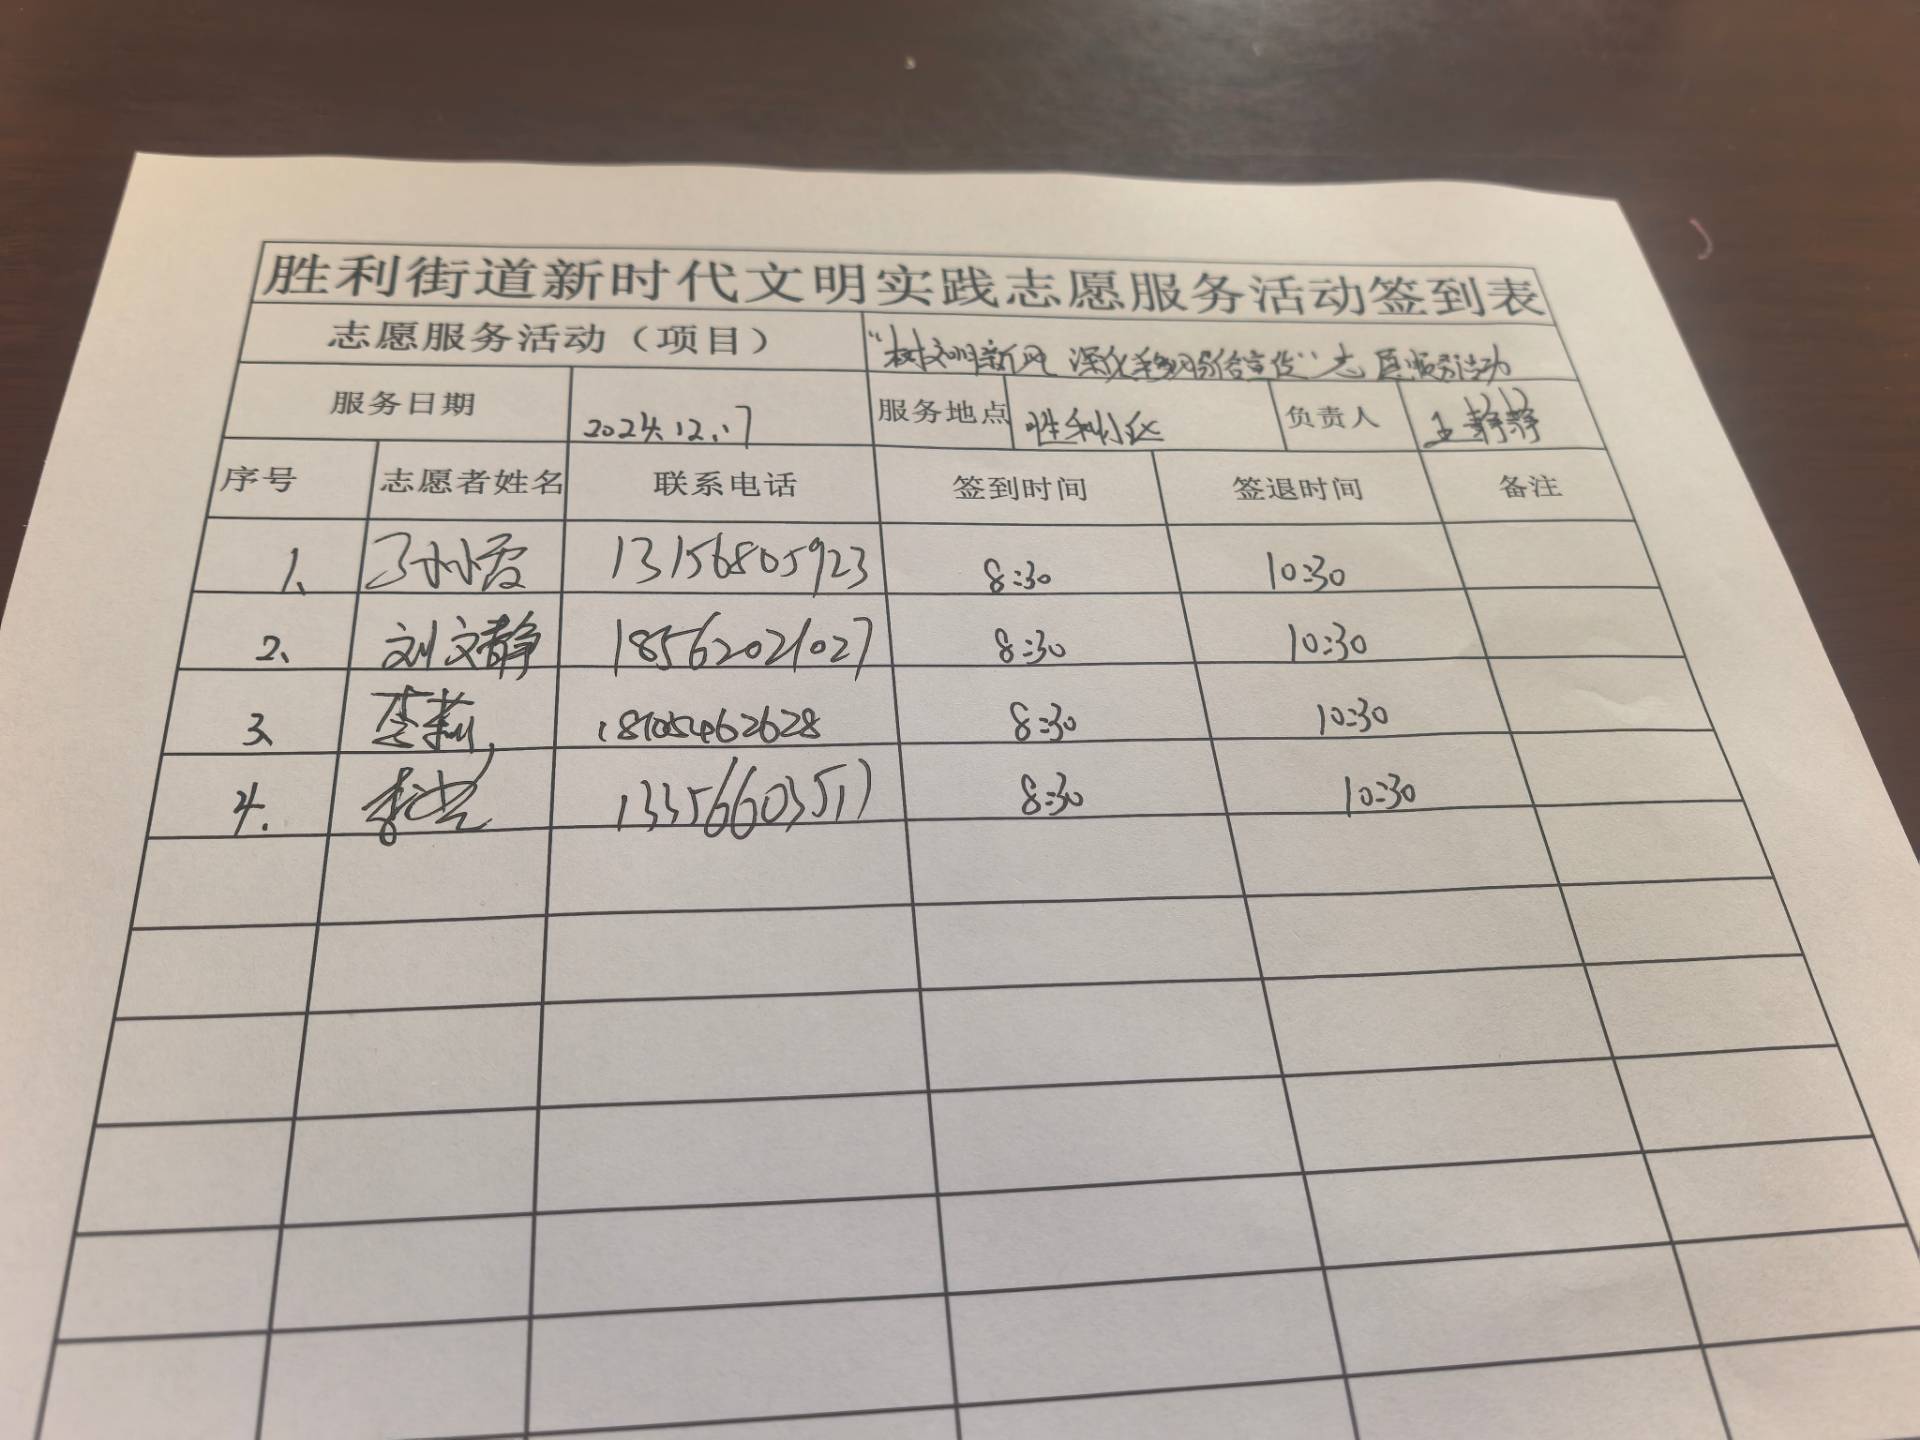 胜利街道新时代文明实践志愿服务活动签到表
志愿服务活动（项目） “树文明新风 深化移风易俗宣传”志愿服务活动
服务日期 2024.12.17 服务地点 胜利社区 负责人 王静静
序号 志愿者姓名 联系电话 签到时间 签退时间 备注
1、 13156805923 8:30 10:30
2、 刘文静 18562021027 8:30 10:30
3、 李莉 18705462628 8:30 10:30
4. 13356603517 8:30 10:30